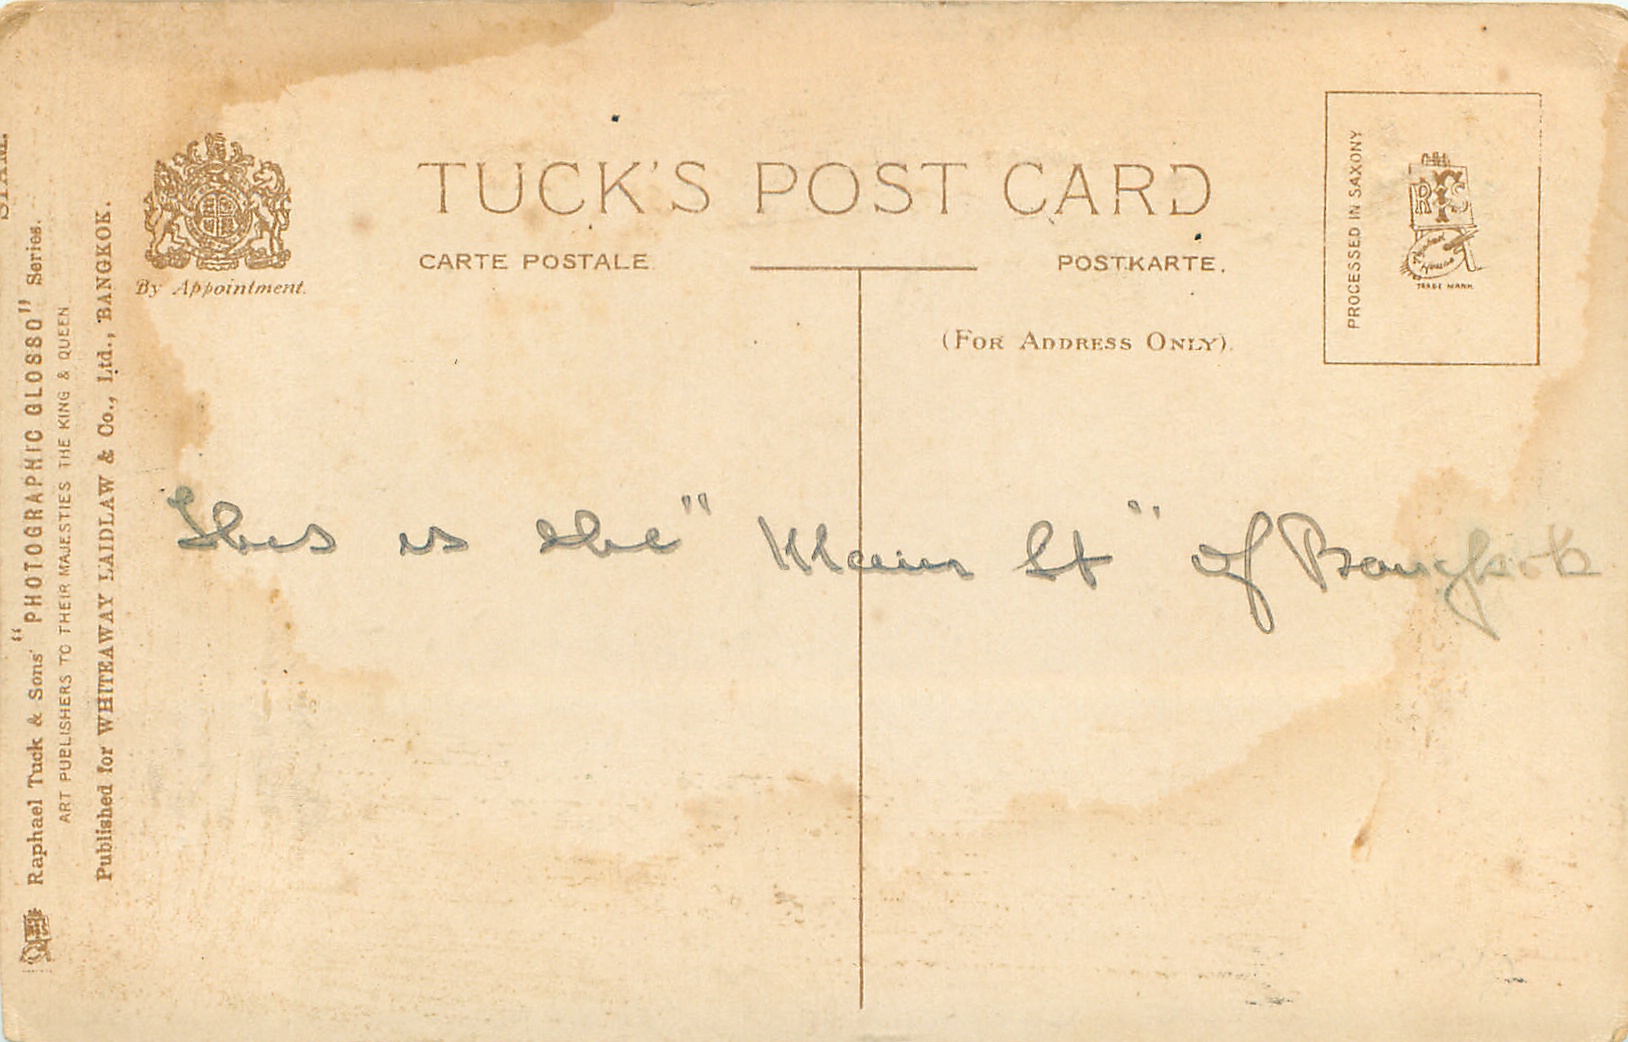 SIAM.
Raphael Tuck & Sons' "PHOTOGRAPHIC GLOSSO" Series.
ART PUBLISHERS TO THEIR MAJESTIES THE KING & QUEEN
Published for WHITEAWAY LAIDLAW & Co., Ltd., BANGKOK.
By Appointment.
TUCK'S POST CARD
CARTE POSTALE
POSTKARTE.
(FOR ADDRESS ONLY)
PROCESSED IN SAXONY
RTS
Raphael
House
TRADE MARK
This is the "Main St" of Bangkok